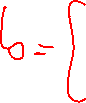 b = {